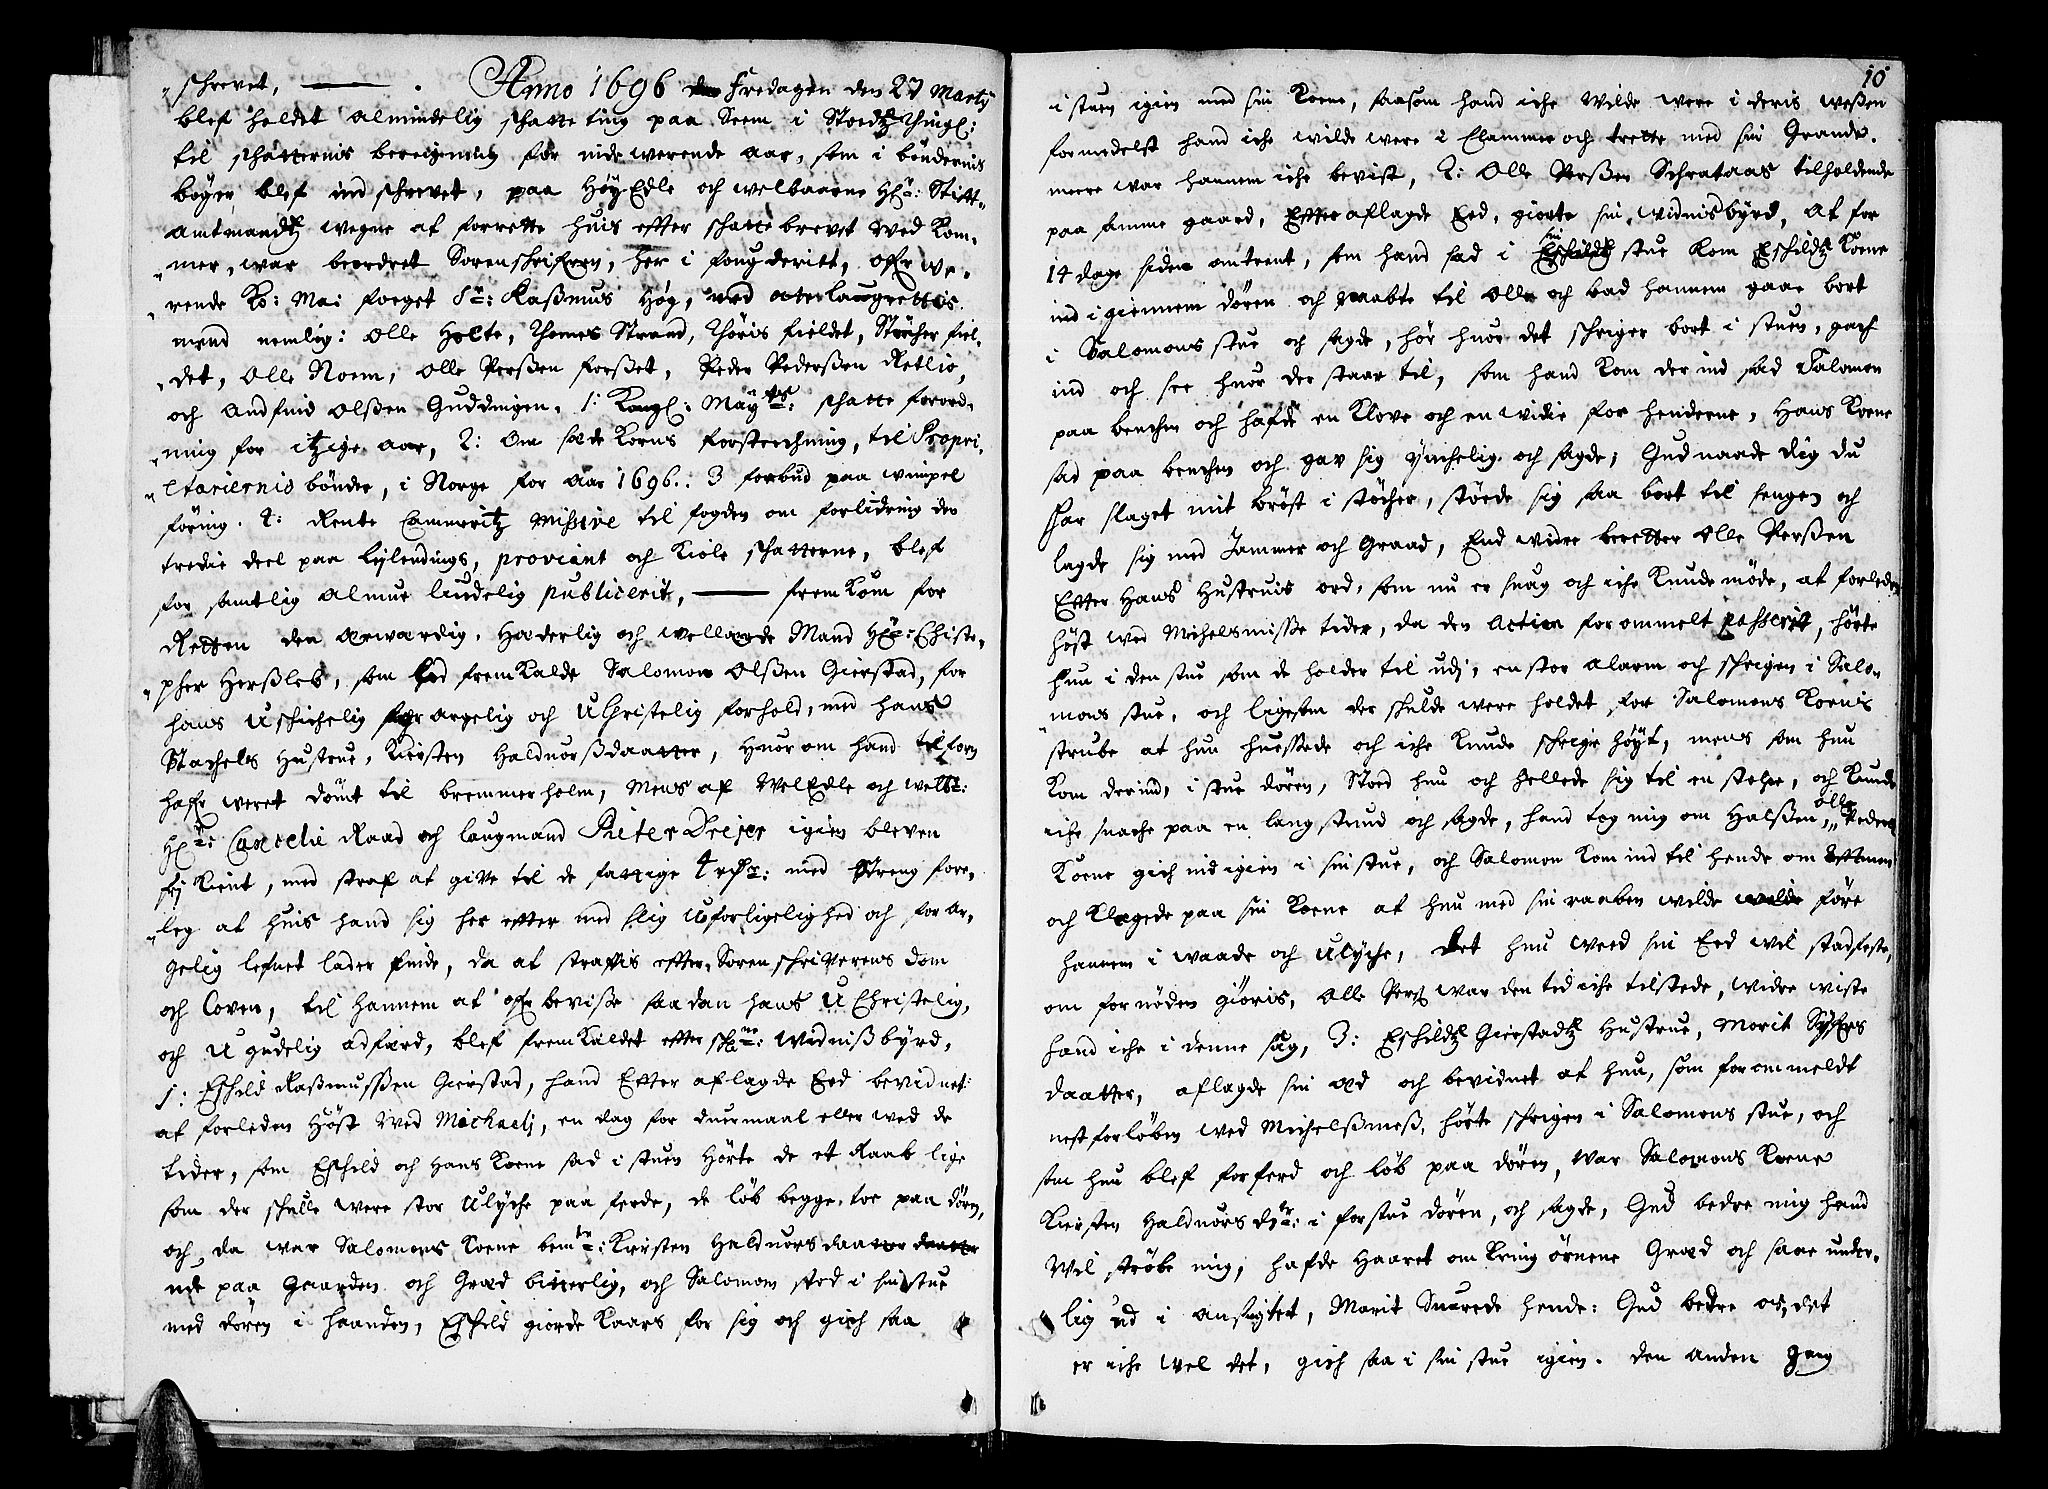 schrevet, ——— . Anno 1696 Fredagen den 27 Martij
blef holdet almindelig schatte ting paa Seem i Stordtz thingl:
til schatternis beregning for nide werende aar, som i böndernis
böger blef ind schrevet, paa Höy Edle och welbaarne Hr: Stift-
amtmandtz wegne at forrette huis effter schatte brevet wed kom-
mer, war beordret Sorenschrifveren, her i fougderiett, ofver we-
rende Ko: Mai: foeget Sr: Rasmus Høg, med otte laugrettis
mend nemlig: Olle Holte, Thomes Strand, Thöris fieldet, Störcher fiel-
det, Olle Noem, Olle Perssen forsset, Peder Pederssen Retlio,
och Andfind Olssen Guddingen. 1: Kongl: Maytts: schatte forord-
ning for itzige aar, 2: Om sæde korns forstrechning, til Propri-
etariernis bönder, i Norge for aar 1696.: 3 forbud paa wimpel
föring. 4: Rente Cammeritz missive til fogden om forlidring den
tredie deel paa leylendings, proviant och kiöle schatterne, blef
for samtlig almue liudelig publicerit, ——— fremkom for
Retten den ærwærdig, hæderlig och wellærde Mand Hr: Christo-
pher Herssleb, som lod fremkalde Salomon Olssen Gierstad, for
hans uschichelig forargelig och uchristelig forhold, med hans
Stachels hustrue, Kirsten Haldvorssdaatter, huor om hand tilforn
hafr weret dömt til bremmerholm, mens af WelEdle och welbr:
Hr: Cancelie Raad och laugmand Pieter Dreyer igien bleven
frj kient, med straf at give til de fattige 4 rdr: med streng fore-
leg at huis hand sig her effter med slig uforligelighed och forar-
gelig lefnet lader finde, da at straffis effter Sorenschriverens dom
och loven, til hannem at ofverbevisse saadan hans uchristelig,
och ugudelig adfærd, blef fremkaldet effter schne: widnissbyrd,
1: Eschild Rasmussen Gierstad, hand Effter aflagde Eed bevidnet
at forleden höst wed Michaelj, en dag for duurmaal eller wed de
tider, som Eschild och hans kone sad i stuen hörte de et Raab lige
som der schulle were stor ulyche paa ferde, de löb begge toe paa dören,
och da war Salomons kone bemte: Kirsten Haldvorsdaatter
ude paa gaarden och græd bitterlig, och Salomon stod i sin stue
med dören i haanden, Eschild giorde kaars for sig och gich saa

10
i stuen igien med sin kone, saasom hand iche wilde were i deris wessen
formedelst hand iche wilde were i Clammer och trette med sin Grande.
meere war hannem iche bevist, 2: Olle Perssen Schrataas tilholdende
paa samme gaard, Effter aflagde Eed, giorte sin widnisbyrd, at for
14 dage siden omtrent, som hand sad i sin stue kom Eschildtz kone
ind igiennem dören och raabte til Olle och bad hannem gaae bort
i Salomons stue och sagde, hör huor det schriger bort i stuen, gach
ind och see huor der staar til, som hand kom der ind sad Salomon
paa benchen och hafde en klove och en widie for henderne, hans kone
sad paa benchen och gav sig ynchelig och sagde, Gud naade dig du
har slaget mit bröst i stöcher, störde sig saa bort til sengen och
lagde sig med Jammer och graad, End widre beretter Olle Perssen
Effter hans hustruis ord, som nu er suag och iche kunde möde, at forleden
höst wed Michelsmisse tider, da den action forommelt passerit, hörte
huu i den stue som de holder til udj, en stor alarm och schrigen i Salo-
mons stue, och ligesom der schulde were holdet for Salomons konis
strube at huu huessede och iche kunde schrige höyt, mens som huu
kom derind, i stue dören, stoed huu och hellede sig til en stolpe, och kunde
iche snache paa en lang stund och sagde, hand tog mig om halssen, Olle Peders
kone gich ind igien i sin stue, och Salomon kom ind til hende om
och klagede paa sin kone at huu med sin raaben wilde före
hannem i waade och ulyche, det huu weed sin Eed wil stadfeste,
om fornöden giöris, Olle Pers war den tid iche tilstede, widre wiste
hand iche i denne sag, 3: Eschildtz Gierstadtz hustrue, Morit Syfers
daatter, aflagde sin æd och bevidnet at huu, som forommeldt
nest forløben wed Michelssmess, hörte schrigen i Salomons stue, och
som huu blef forferd och löb paa dören, war Salomons kone
Kirsten Haldvorsdtr: i forstue dören, och sagde, Gud bedre mig hand
wil ströbe mig, hafde haaret omkring örnene græd och saae under-
lig ud i ansigtet, Marit suarede hende: Gud bedre os, det
er iche wel det, gich saa i sin stue igien. den anden gang